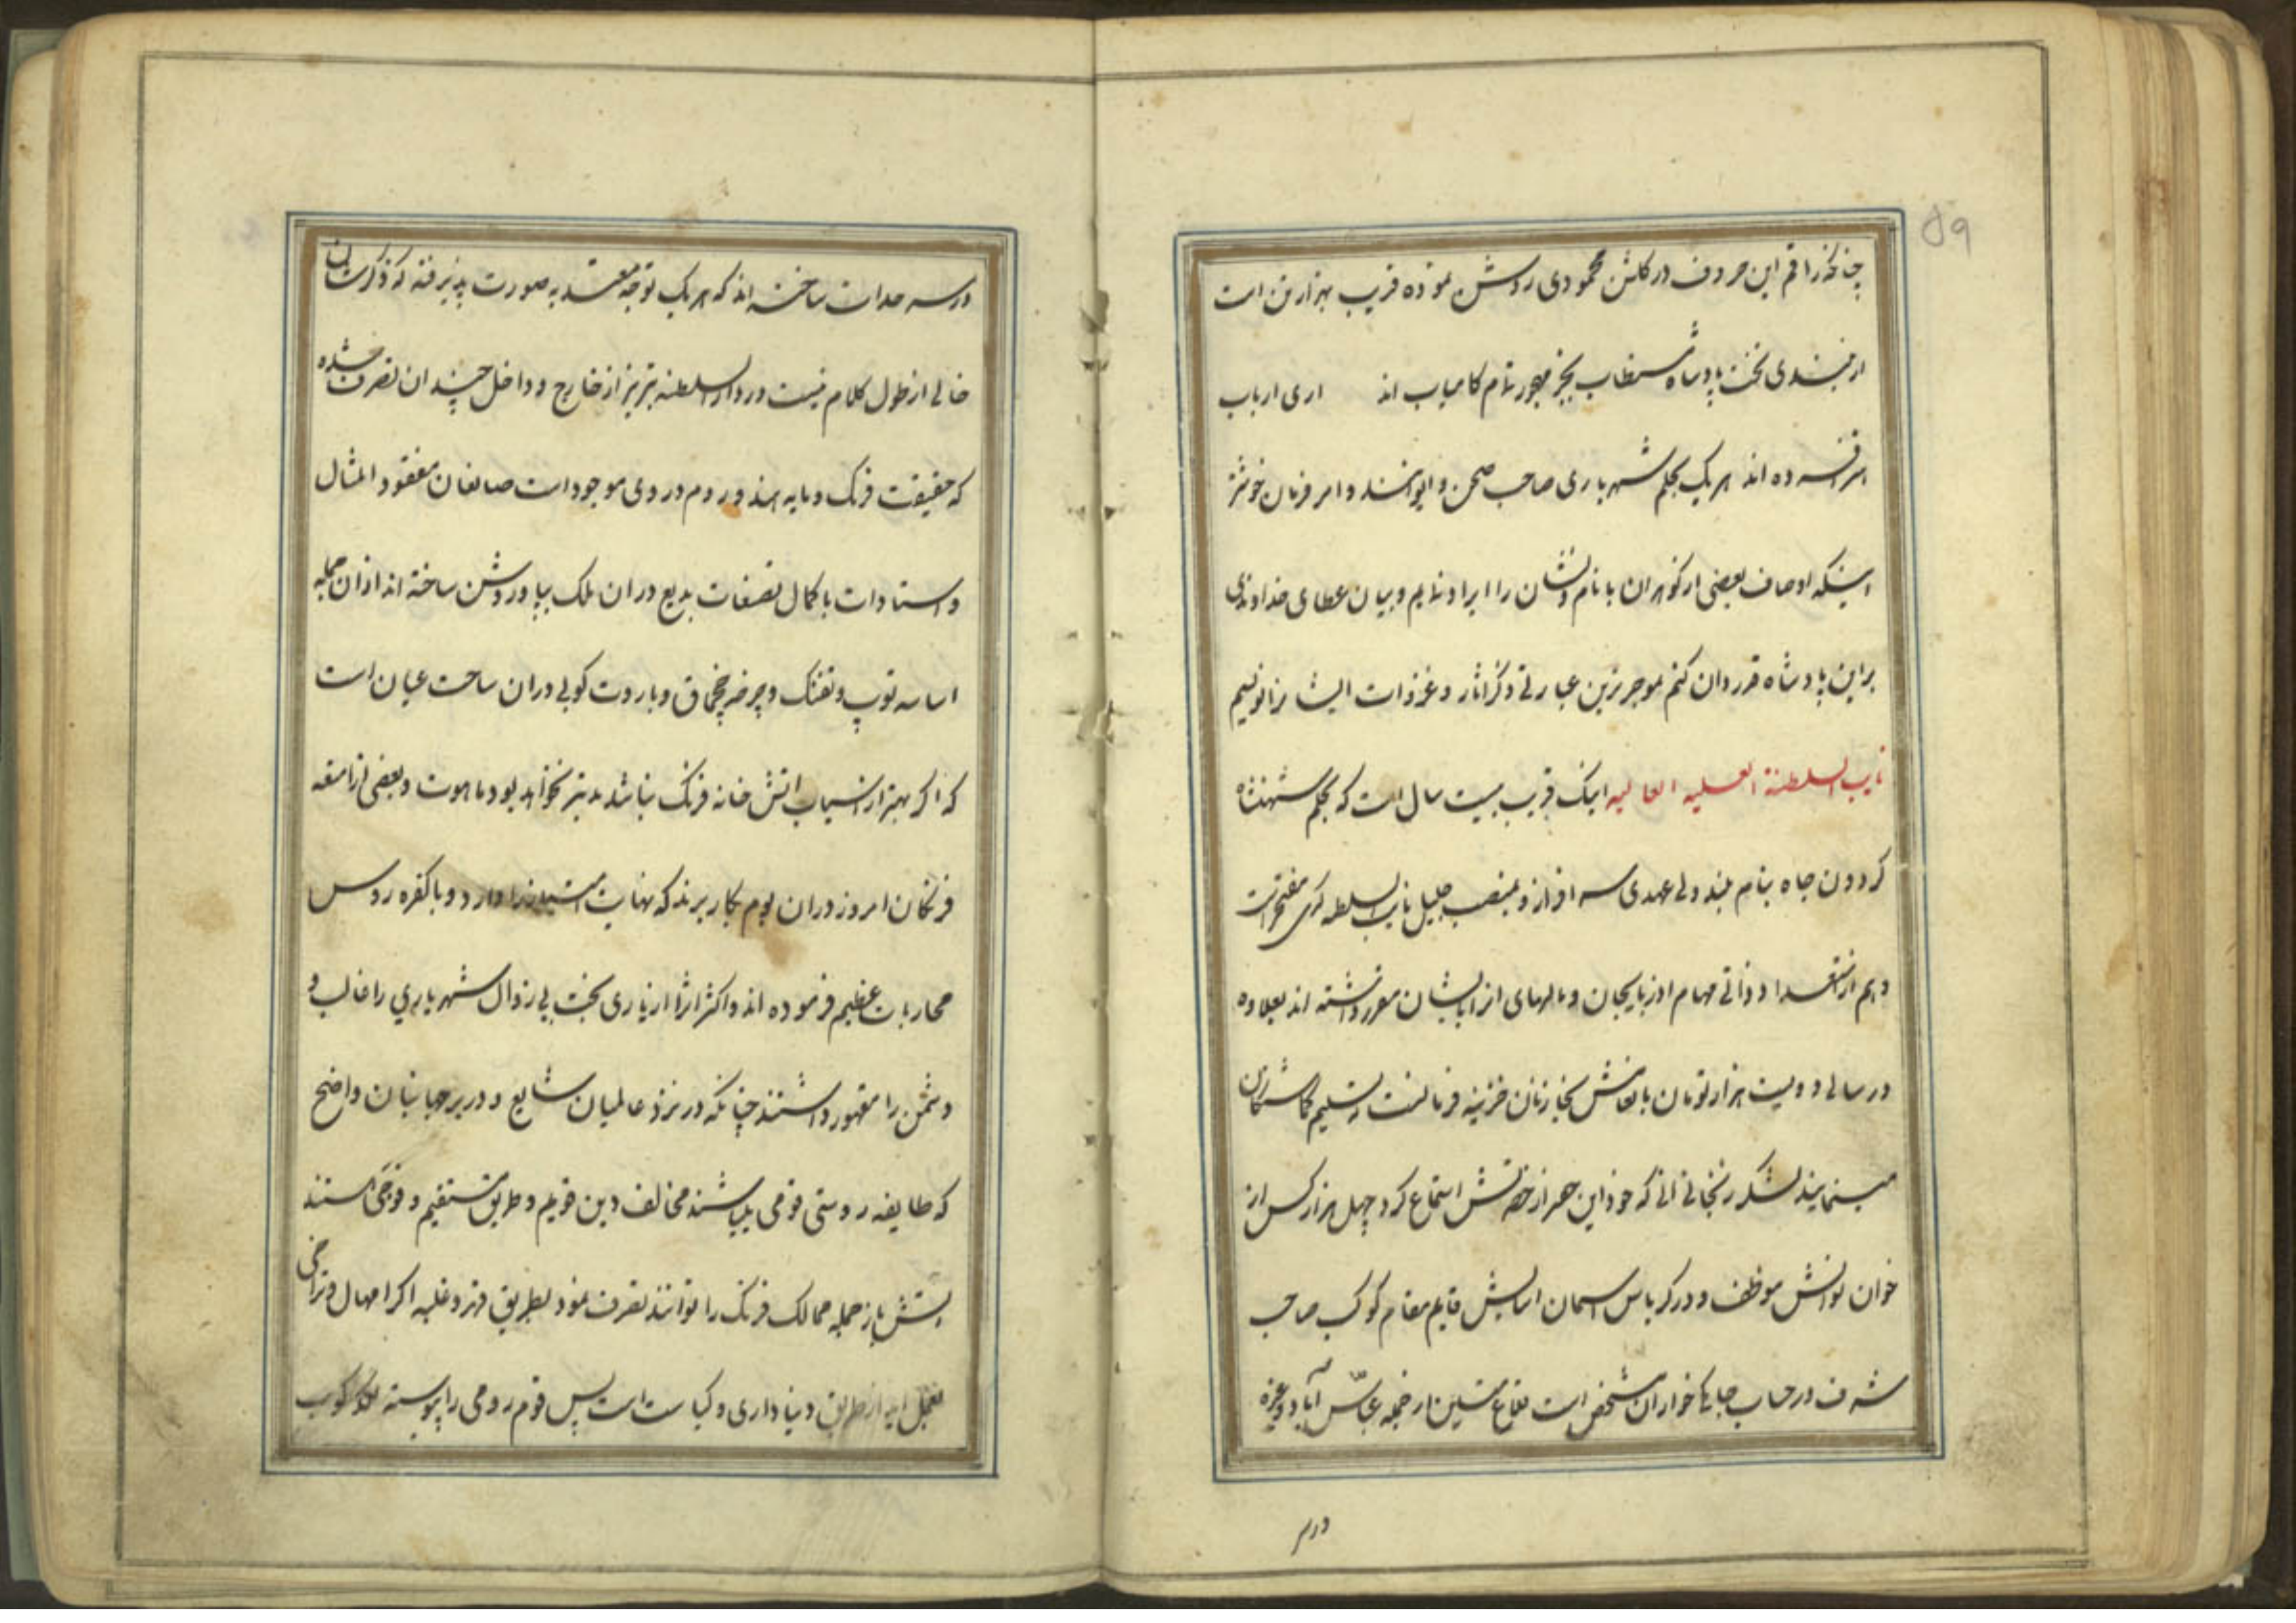 ۵۹
چنانکه راقم این حروف در کلشن محمودی روشن نموده قریب بهزار تن است
ارجمندی بخت پادشاه مستطاب بخبر تمام کامیاب اند اری ارباب
افسرده اند هریک بحکم شهریاری صاحب صحن و ایوانند و امر و فرمان خوشتر
اینکه اوصاف بعضی از کوهران با نام و نشان را ایراد نمایم و بیان عطای خداوندی
براین پادشاه قدردان کنم بموجزترین عبارتی ذکر اثار و غزوات ایشانرا نویسم
نایب السلطنة العلیه العالیه اینک قریب بیست سال است که بحکم شهنشاه
کردون جاه بنام بلند ولی عهدی سرافراز و بمنصب جلیل نایب السلطنه کری مفتخر است
و هم از استعداد ذاتی مهام اذربایجان و مالهای انرا بایشان مقرر داشته اند بعلاوه
در سالی دویست هزار تومان بانعامش خازنان خزینه تسلیم کماشتکان
مینمایند لشکر رنجانی که خود این حصر از حضرتش استماع کرد چهل هزار کس از
خوان نوالش موظف و در کریاس اسمان اساسش قایم مقام کوکب صاحب
شرف در حساب خواران مشخص است قلاع متین از خیمه عباس آباد و غیره
در سر
در سر حدات ساخته اند که هریک توجه معتد به صورت پذیرفته که ذکرشان
خالی از طول کلام نیست و در دار السلطنه تبریز از خارج و داخل چندان تصرف شده
که حقیقت فرنک و مایه هند و روم در وی موجود است صانعان مفقود المثال
و استادات با کمال تصنعات بدیع در ان ملک بپا و روشن ساخته اند از ان جمله
اساسه توپ و تفنک و چرخ چخماق و باروت کوبی در ان ساحت عیان است
که اکر بهتر از اسباب اتش خانه فرنک نباشد بدتر نخواهد بود و ماهوت و بعضی از امتعه
فرنکان امروز در ان بوم بکار برند که نهایت امتیاز را دارد و با کفره روس
محاربات عظیم فرموده اند و اکثر انرا از یاری بخت بی زوال شهریاری را غالب و
دشمن را مقهور داشتند چنانکه در نزد عالمیان شایع و در بر جهانیان واضح
که طایفه روسی قومی میباشند مخالف دین قویم و طریق مستقیم و فوجی هستند
جمله ممالک فرنک را توانند تصرف نمود بطریق قهر و غلبه اکر امهال و تراخی
از طریق دنیاداری و کیاست است پس قوم رومی را پیوسته لکدکوب